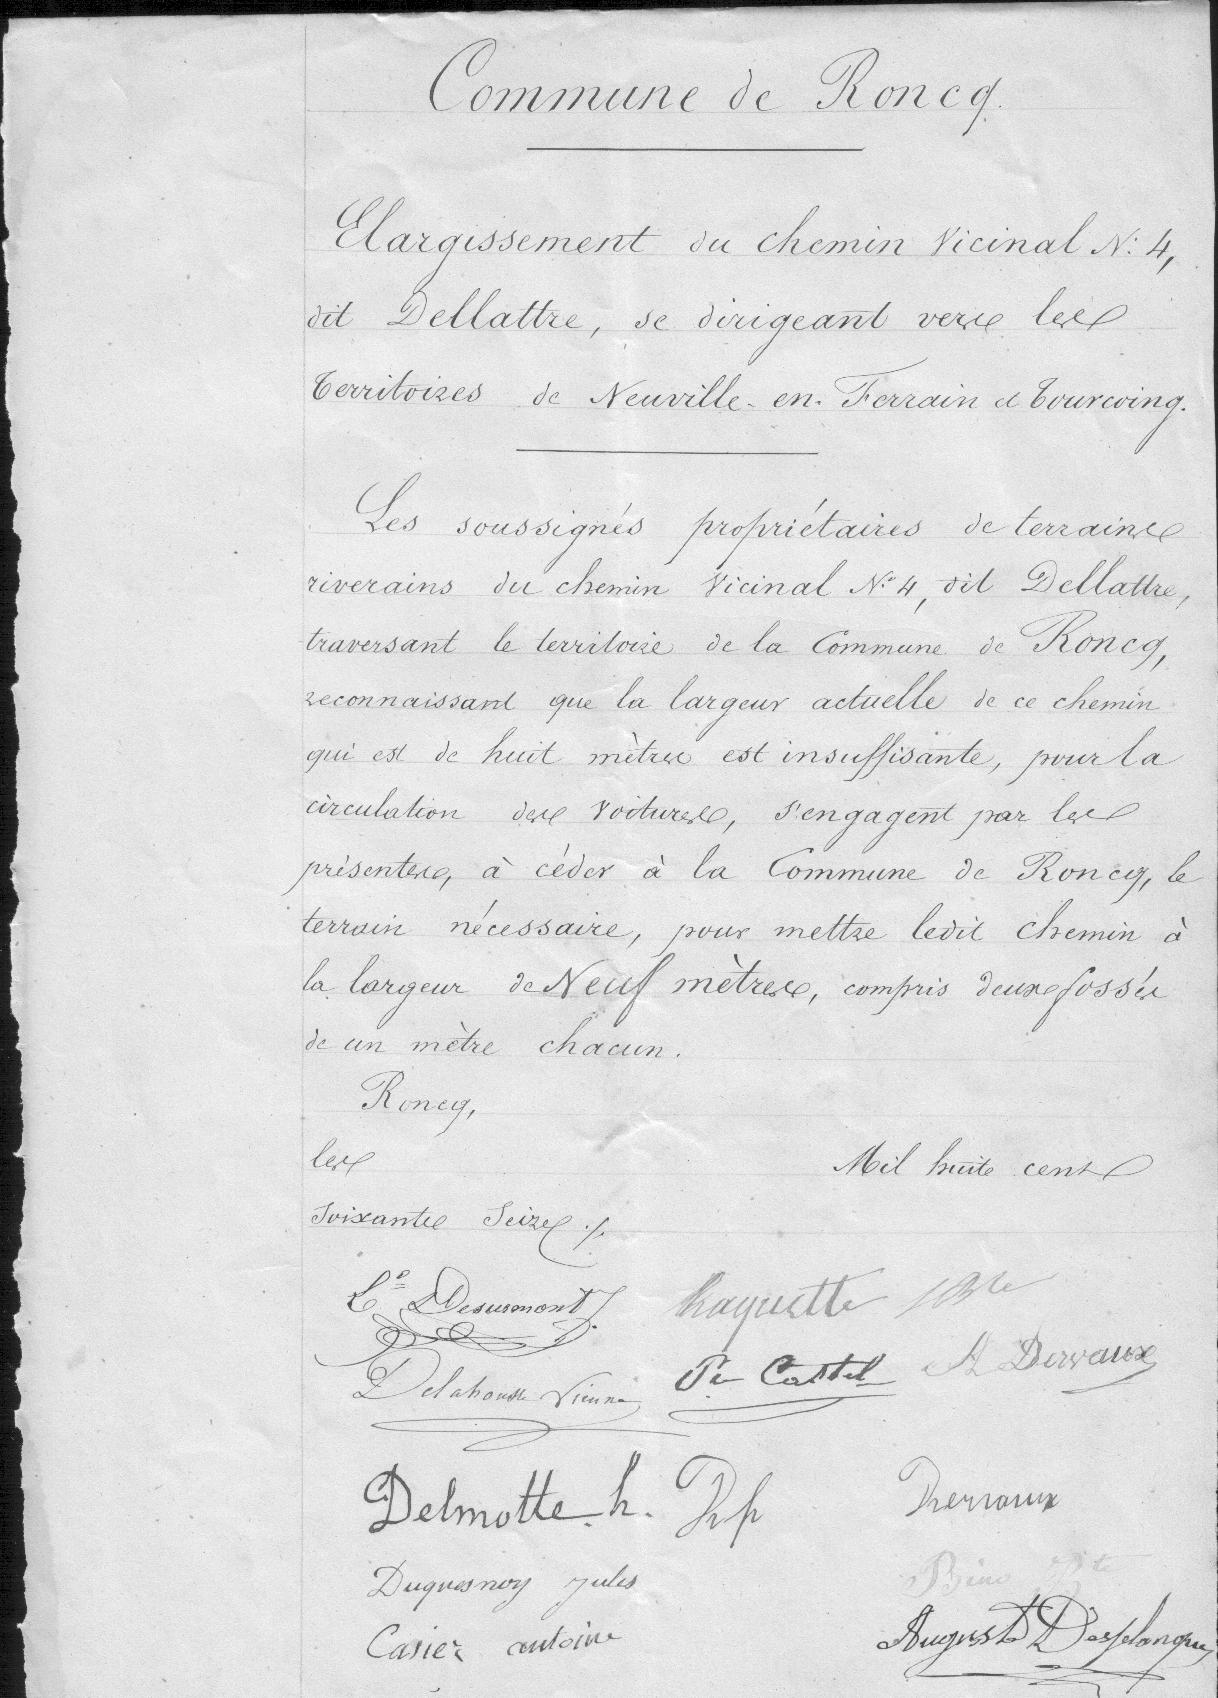 Commune de Roncq.
Elargissement du chemin Vicinal N: 4,
dit Dellattre, se dirigeant vers les
Territoires de Neuville-en-Ferrain et Tourcoing.
Les soussignés propriétaires de terrains
riverains du chemin Vicinal N° 4, dit Dellattre,
traversant le territoire de la Commune de Roncq,
reconnaissant que la largeur actuelle de ce chemin
qui est de huit mètres est insuffisante, pour la
circulation des Voitures, s'engagent par les
présentes, à céder à la Commune de Roncq, le
terrain nécessaire, pour mettre ledit chemin à
la largeur de Neuf mètres, compris deux fossés
de un mètre chacun.
Roncq,
les Mil huit cent
Soixante Seize ./.
Desurmont
A Dervaux
Delahousse Vienne Castel
Delmotte h.
Duquesnoy jules
Casier antoine Auguste Desplanques